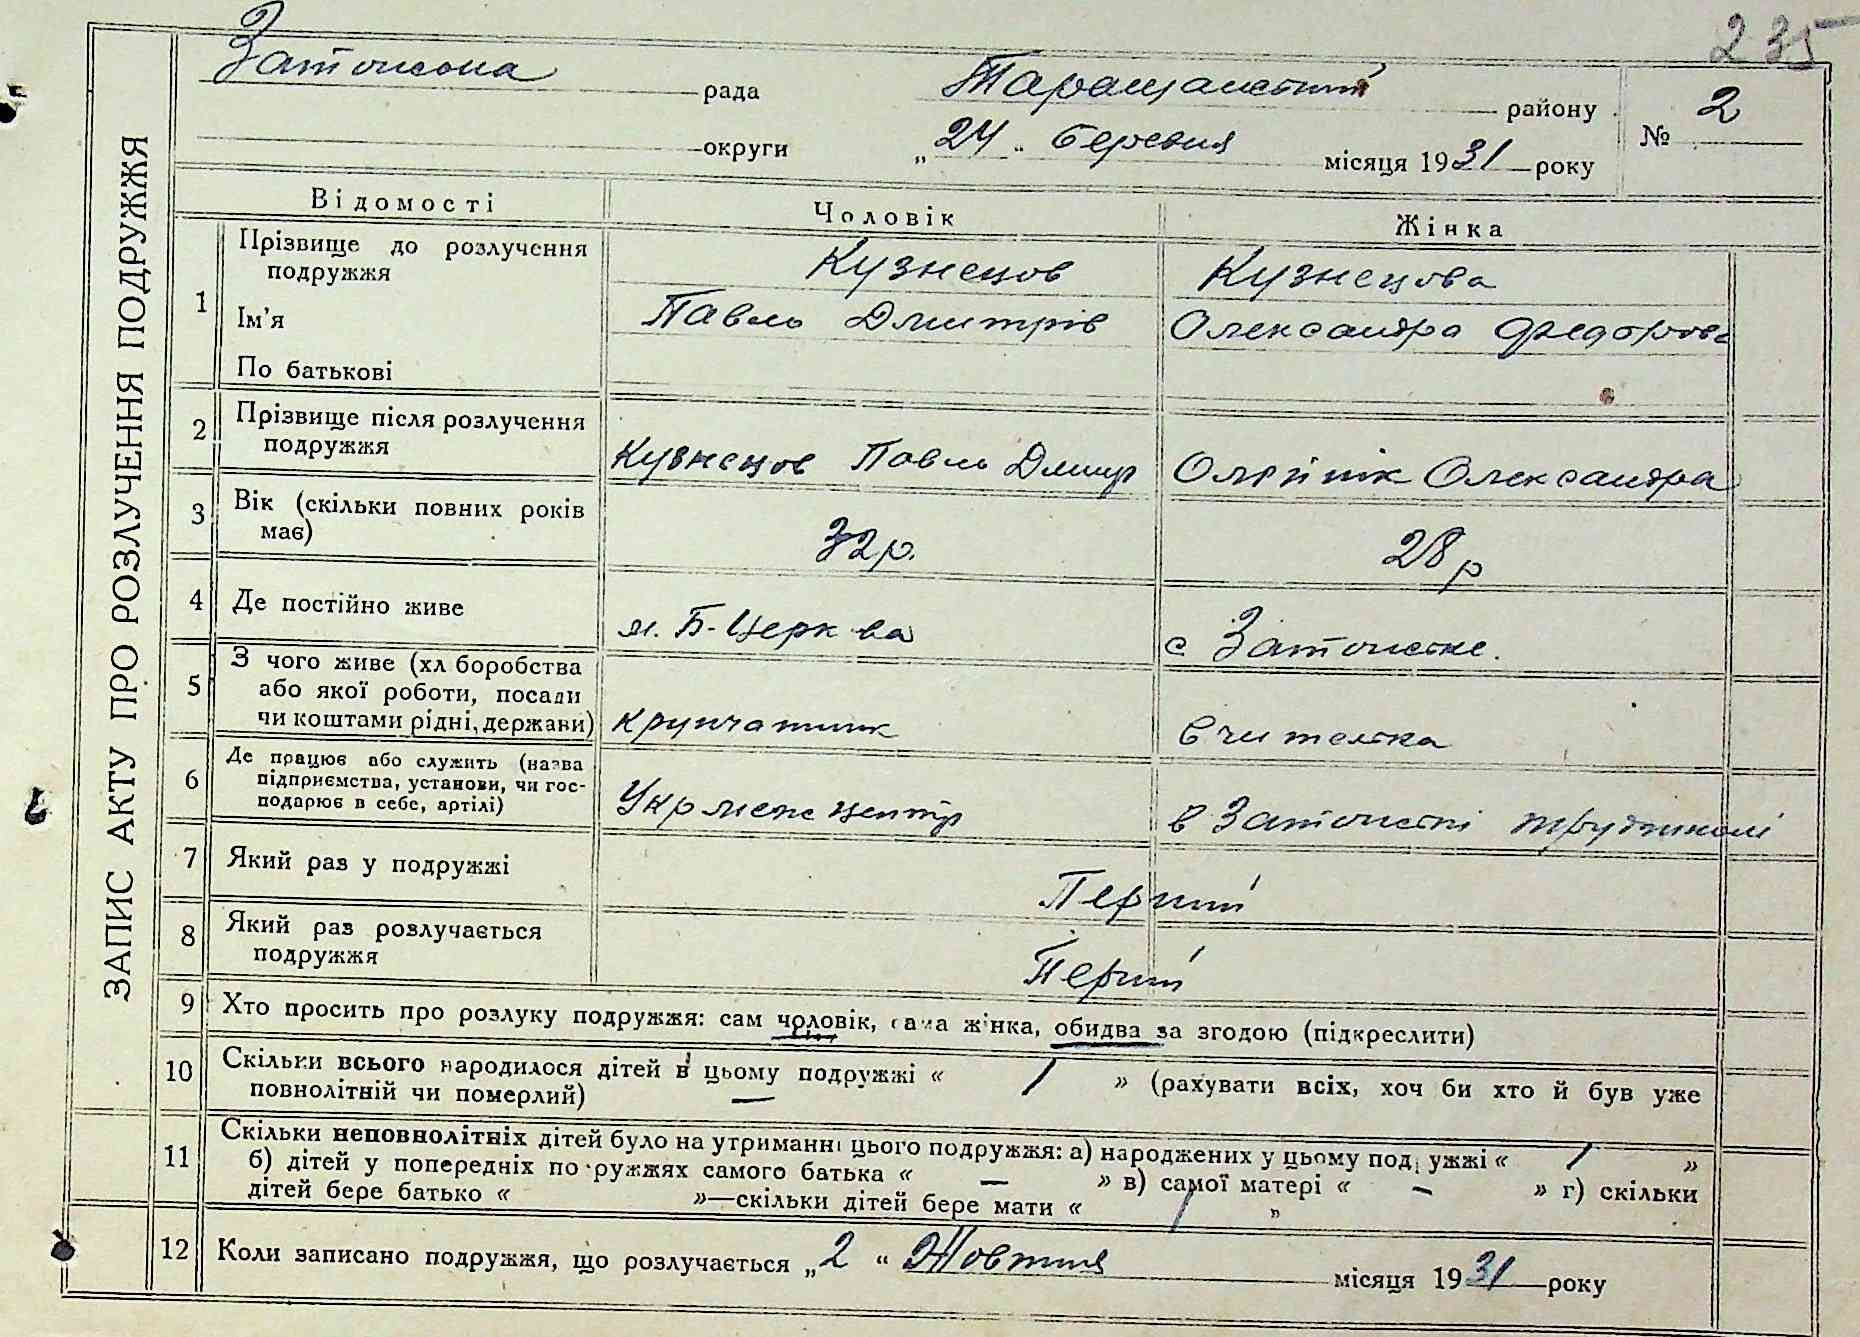 235
рада Таращанський району № 2
округи „24" березня місяця 1931 року
ЗАПИС АКТУ ПРО РОЗЛУЧЕННЯ ПОДРУЖЖЯ
Відомості Чоловік Жінка
1 Прізвище до розлучення подружжя Кузнецов Кузнецова
Ім'я Павло Дмитрів Олександра Федорова
По батькові
2 Прізвище після розлучення
подружжя Кузнецов Павло Дмитр Олійнік Олександра
3 Вік (скільки повних років
має) 32 р. 28 р
4 Де постійно живе м. Б-Церква с
5 З чого живе (хл боробства
або якої роботи, посади
чи коштами рідні, держави) крупчатник вчителька
6 Де працює або служить (назва
підприємства, установи, чи гос-
подарює в себе, артілі) в трудшколі
7 Який раз у подружжі Перший
8 Який раз розлучається
подружжя Перший
9 Хто просить про розлуку подружжя: сам чоловік, сама жінка, обидва за згодою (підкреслити)
10 Скільки всього народилося дітей в цьому подружжі « 1 » (рахувати всіх, хоч би хто й був уже
повнолітній чи померлий) —
11 Скільки неповнолітніх дітей було на утриманні цього подружжя: а) народжених у цьому подружжі « 1 »
б) дітей у попередніх подружжях самого батька « — » в) самої матері « — » г) скільки
дітей бере батько « »—скільки дітей бере мати « 1 »
12 Коли записано подружжя, що розлучається „2 “ Жовтня місяця 1931 року